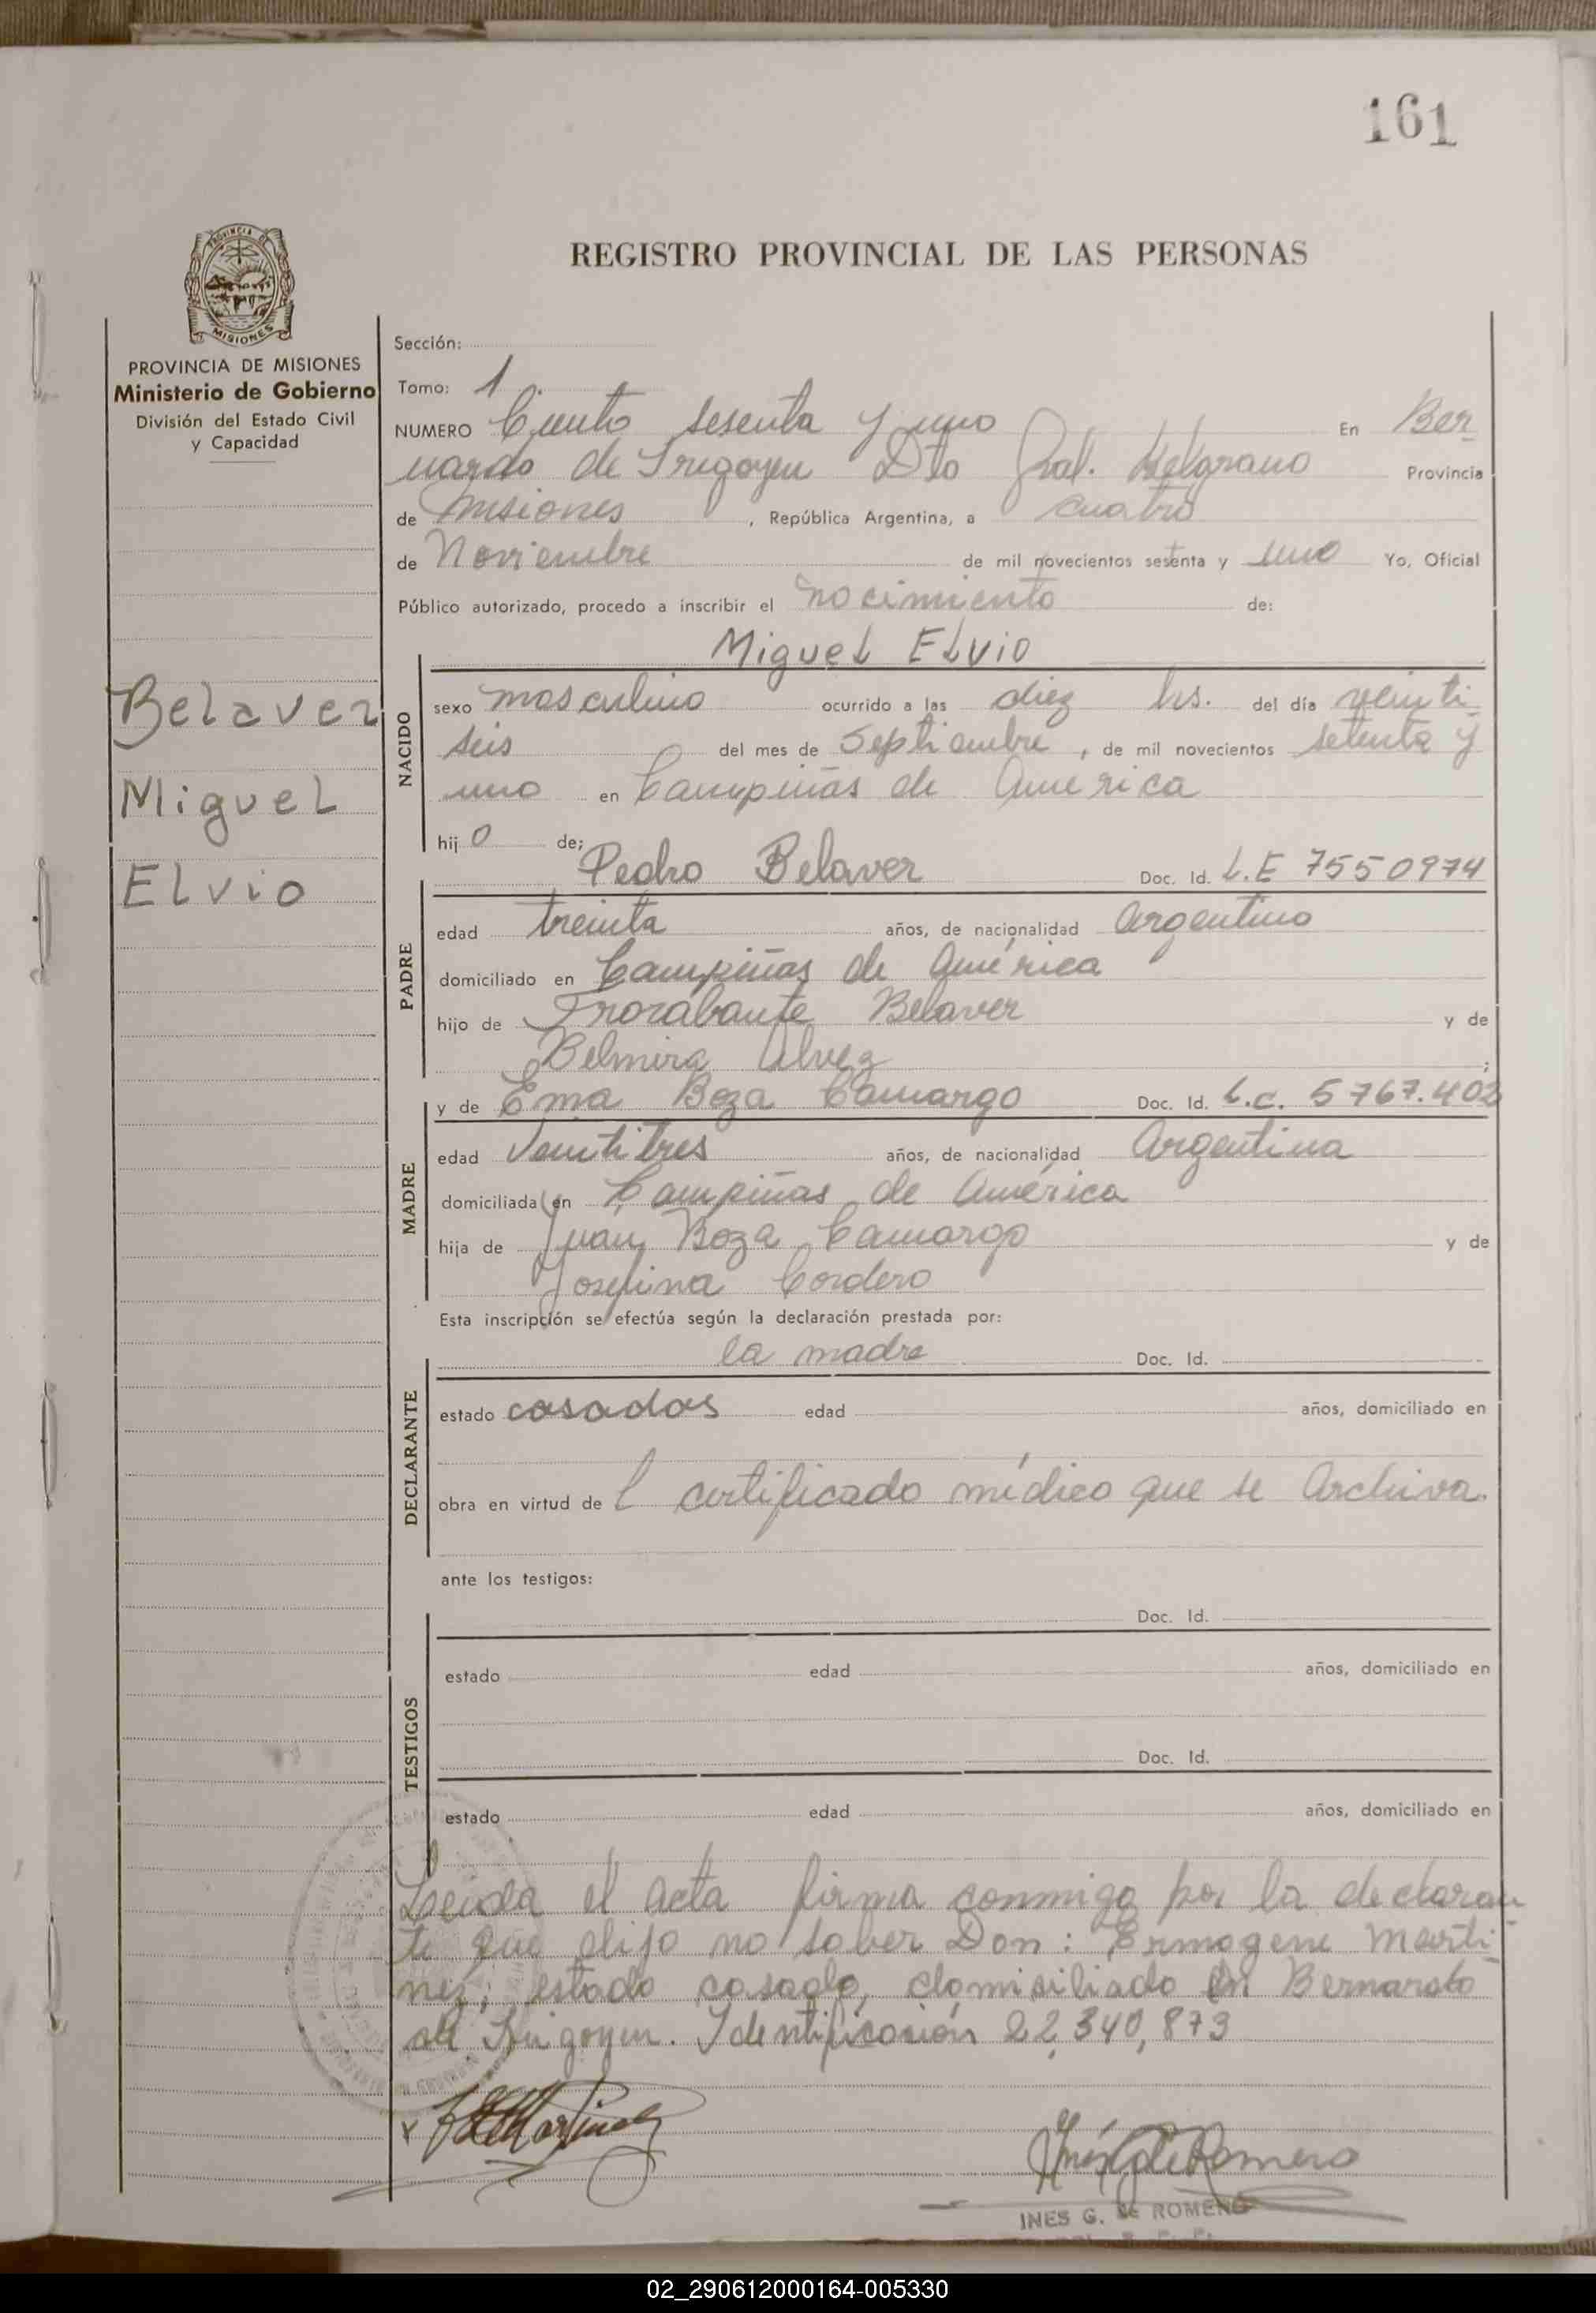 161
REGISTRO PROVINCIAL DE LAS PERSONAS
PROVINCIA DE
MISIONES
PROVINCIA DE MISIONES
Ministerio de Gobierno
División del Estado Civil
y Capacidad
Belaver
Miguel
Elvio
Sección:
Tomo: 1
NUMERO Ciento sesenta y uno En Ber-
nardo de Irigoyen Dto Gral. Belgrano Provincia
de Misiones, República Argentina, a cuatro
de Noviembre de mil novecientos setenta y uno Yo, Oficial
Público autorizado, procedo a inscribir el nacimiento de:
Miguel Elvio
NACIDO
sexo masculino ocurrido a las diez hs. del día veinti-
seis del mes de Septiembre, de mil novecientos setenta y
uno en Campiñas de America
hijo de; Pedro Belaver Doc. Id. L.E 7550974
PADRE
edad treinta años, de nacionalidad Argentino
domiciliado en Campiñas de América
hijo de Belaver y de
Belmira Alvez;
y de Ema Boza Camargo Doc. Id. L.C. 5767.402
MADRE
edad Veintitres años, de nacionalidad Argentina
domiciliada en Campiñas de América
hija de Juan Boza Camargo y de
Josefina Cordero
Esta inscripción se efectúa según la declaración prestada por:
la madre Doc. Id.
DECLARANTE
estado casados edad años, domiciliado en
obra en virtud de l certificado médico que se Archiva.
ante los testigos:
Doc. Id.
TESTIGOS
estado edad años, domiciliado en
Doc. Id.
estado edad años, domiciliado en
Leida el acta firma conmigo por la declaran-
te que dijo no saber Don: Ermogene Marti-
nez; estado casado, domisiliado en Bernardo
de Irigoyen. Identificación 22,340,873
INES G. de ROMERO
02_290612000164-005330